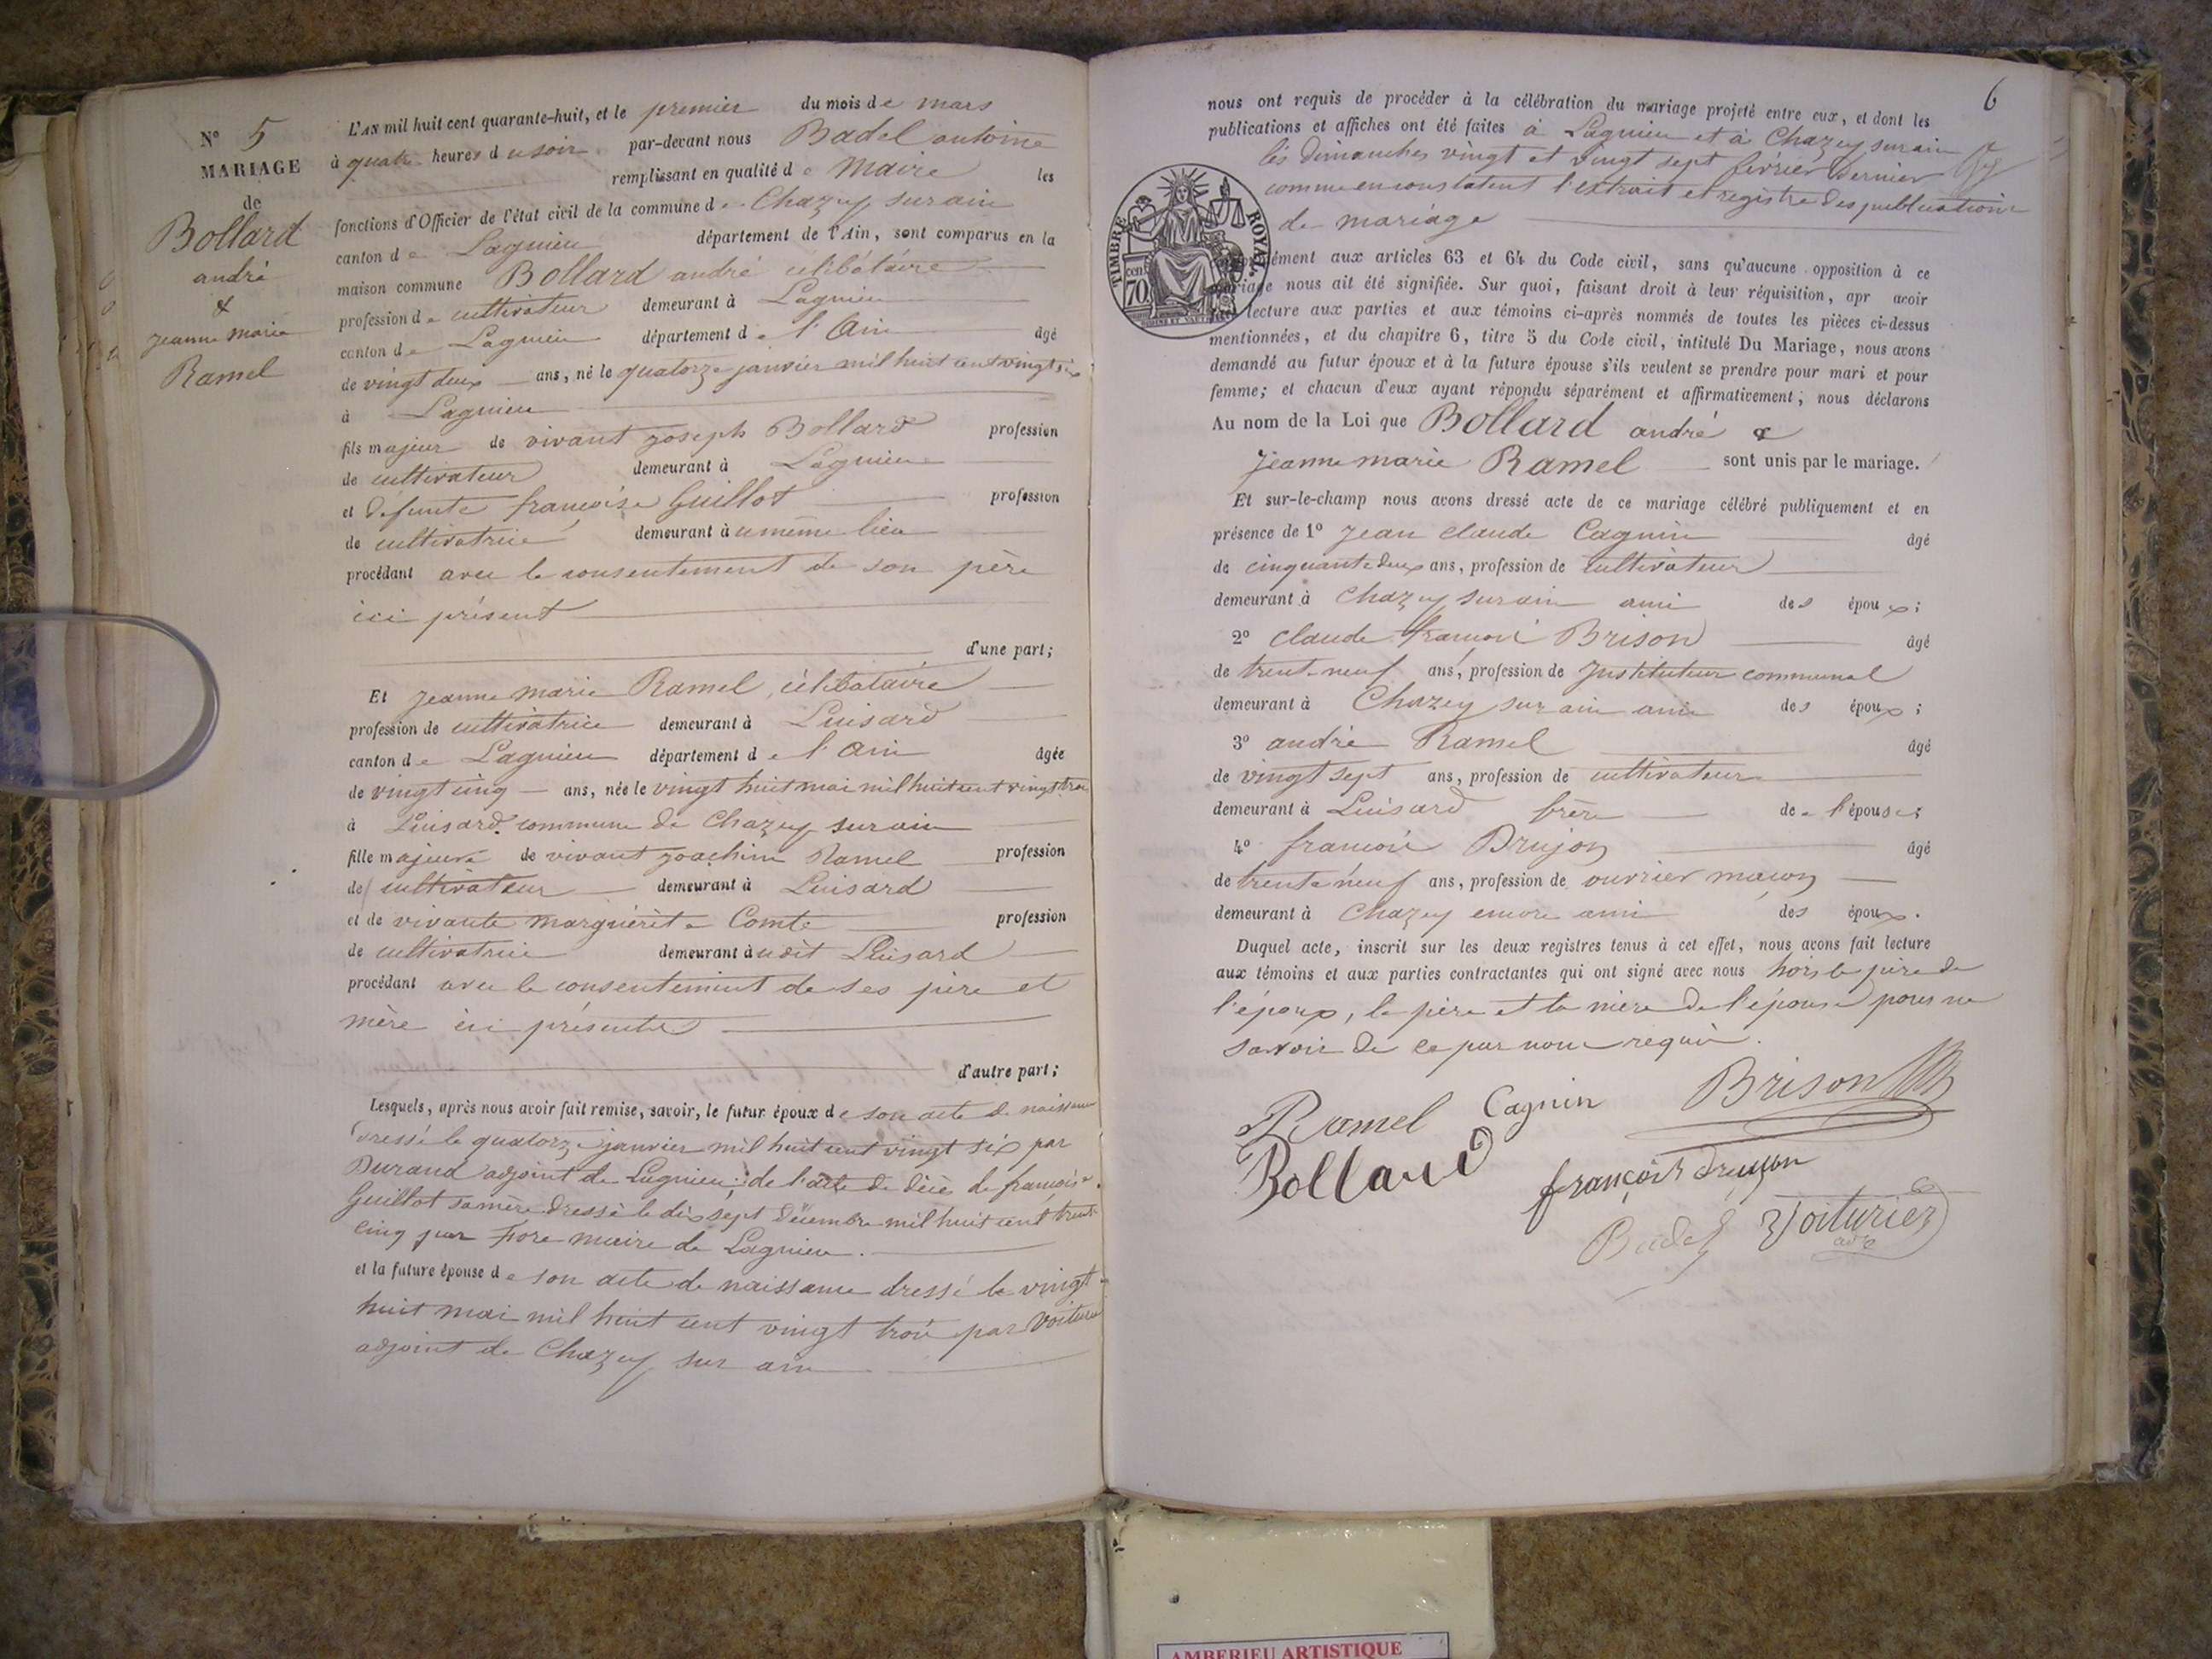 N° 5
MARIAGE
de
Bollard
andré
&
jeanne marie
Ramel
L'AN mil huit cent quarante-huit, et le premier du mois de mars
à quatre heures du soir par-devant nous Badel antoine
remplissant en qualité de Maire les
fonctions d'Officier de l'état civil de la commune de Chazey sur ain
canton de Lagnieu département de l'Ain, sont comparus en la
maison commune Bollard andré célibataire
profession de cultivateur demeurant à Lagnieu
canton de Lagnieu département de l'Ain âgé
de vingt deux ans, né le quatorze janvier mil huit cent vingt six
à Lagnieu
fils majeur de vivant joseph Bollard profession
de cultivateur demeurant à Lagnieu
et défunte françoise Guillot profession
de cultivatrice demeurant au même lieu
procédant avec le consentement de son père
ici présent
d'une part;
Et jeanne marie Ramel, célibataire
profession de cultivatrice demeurant à Luisard
canton de Lagnieu département de l'Ain âgée
de vingt cinq ans, née le vingt huit mai mil huit cent vingt trois
à Luisard commune de Chazey sur ain
fille majeure de vivant joachim Ramel profession
de cultivateur demeurant à Luisard
et de vivante marguerite Comte profession
de cultivatrice demeurant audit Luisard
procédant avec le consentement de ses père et
mère ici présents
d'autre part;
Lesquels, après nous avoir fait remise, savoir, le futur époux de son acte de naissance
dressé le quatorze janvier mil huit cent vingt six par
Durand adjoint de Lagnieu; de l'acte de décè de françoise
Guillot sa mère dressé le dix sept décembre mil huit cent trente
cinq par Fore maire de Lagnieu.
et la future épouse de son acte de naissance dressé le vingt
huit mai mil huit cent vingt trois par Voiturier
adjoint de Chazey sur ain
6
nous ont requis de procéder à la célébration du mariage projeté entre eux, et dont les
publications et affiches ont été faites à Lagnieu et à Chazey sur ain
les dimanches vingt et vingt sept février dernier
comme en constatent l'extrait et registre des publications
de mariage
TIMBRE ROYAL
cent 70
ément aux articles 63 et 64 du Code civil, sans qu'aucune opposition à ce
mariage nous ait été signifiée. Sur quoi, faisant droit à leur réquisition, apr avoir
lecture aux parties et aux témoins ci-après nommés de toutes les pièces ci-dessus
mentionnées, et du chapitre 6, titre 5 du Code civil, intitulé Du Mariage, nous avons
demandé au futur époux et à la future épouse s'ils veulent se prendre pour mari et pour
femme; et chacun d'eux ayant répondu séparément et affirmativement; nous déclarons
Au nom de la Loi que Bollard andré &
jeanne marie Ramel sont unis par le mariage.
Et sur-le-champ nous avons dressé acte de ce mariage célébré publiquement et en
présence de 1° jean claude Cagnin âgé
de cinquante deux ans, profession de cultivateur
demeurant à Chazey sur ain ami des époux;
2° claude françois Brison âgé
de trente neuf ans, profession de Instituteur communal
demeurant à Chazey sur ain ami des époux;
3° andré Ramel âgé
de vingt sept ans, profession de cultivateur
demeurant à Luisard frère de l'épouse;
4° françois Drujon âgé
de trente neuf ans, profession de ouvrier maçon
demeurant à Chazey encore ami des époux.
Duquel acte, inscrit sur les deux registres tenus à cet effet, nous avons fait lecture
aux témoins et aux parties contractantes qui ont signé avec nous hors le père de
l'époux, le père et la mère de l'épouse pour ne
savoir de ce par nous requis.
Ramel Cagnin Brison
Bollard françois drujon
Badel Voiturier
AMBERIEU ARTISTIQUE